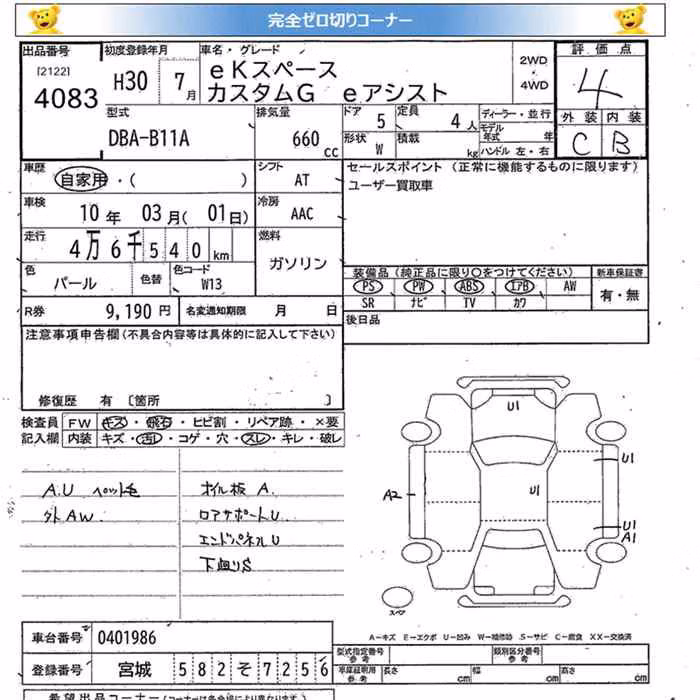 完全ゼロ切りコーナー
出品番号 初度登録年月 車名・グレード 評価点
[2122] 4083 H30 7月 eKスペース 2WD 4
カスタムG eアシスト 4WD
型式 排気量 ドア 5 定員 4人 ディーラー・並行 外装 内装
DBA-B11A 660cc 形状 W 積載 kg モデル年式 年 C B
ハンドル 左・右
車歴 自家用・( ) シフト AT セールスポイント (正常に機能するものに限ります)
ユーザー買取車
車検 10年 03月(01日) 冷房 AAC
走行 4万6千540km 燃料 ガソリン
色 パール 色替 色コード W13 装備品(純正品に限り○をつけてください) 新車保証書
PS PW ABS エアB AW 有・無
SR ナビ TV カワ
R券 9,190円 名変通知期限 月 日 後日品
注意事項申告欄(不具合内容等は具体的に記入して下さい)
修復歴 有 [箇所 ]
検査員 FW キズ・飛石・ヒビ割・リペア跡・×要
記入欄 内装 キズ・汚レ・コゲ・穴・スレ・キレ・破レ
A.U ペット毛 オイル板 A.
外AW. ロアサポートU
エンドパネルU
下廻りS
U1
U1
A2 U1
U1
A1
スペア
A-キズ E-エクボ U-凹み W-補修跡 S-サビ C-腐食 XX-交換済
車台番号 0401986 型式指定番号 参考 類別区分番号 参考
登録番号 宮城 582そ7256 車庫証明用 参考 長さ cm 幅 cm 高さ cm
希望出品コーナー(コーナーは各会場により異なります)